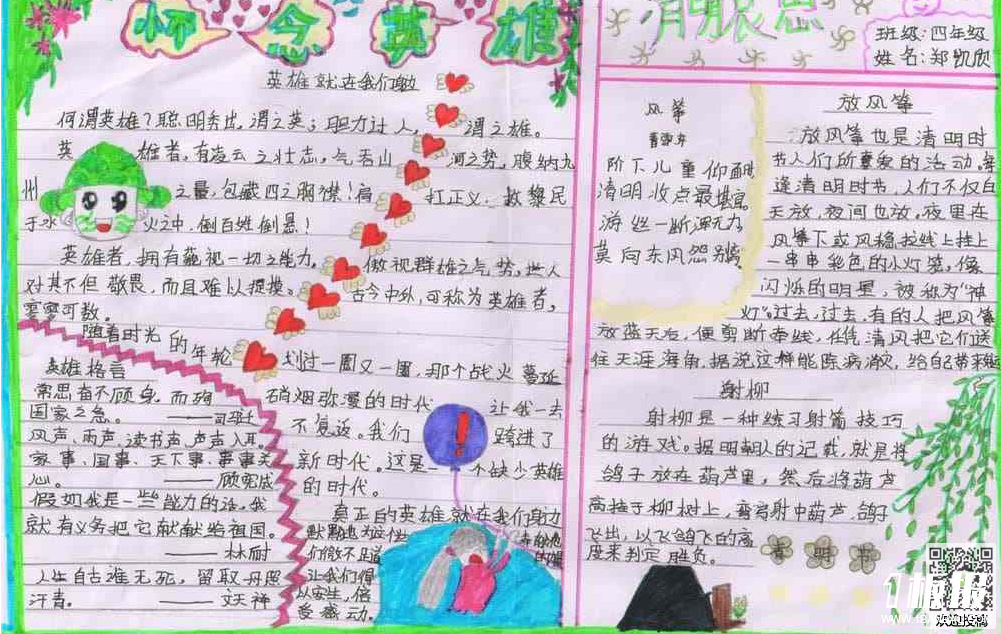 怀念英雄
英雄就在我们身边
何谓英雄?聪明秀出,谓之英;胆力过人,谓之雄。
英雄者,有凌云之壮志,气吞山河之势,腹纳九
州之量,包藏四之胸襟!肩扛正义,救黎民
于水火之中,倒百姓倒悬!
英雄者,拥有藐视一切之能力。傲视群雄之气势,世人
对其不但敬畏,而且难以捉摸。古今中外,可称为英雄者,
寥寥可数。
随着时光的年轮划过一圈又一圈,那个战火蔓延
硝烟弥漫的时代让我一去
不复返。我们跨进了
新时代。这是一个缺少英雄
的时代。
真正的英雄就在我们身边
默默地为
们微不足道
让我们得
以安生,倍
受感动。
英雄格言
常思奋不顾身,而殉
国家之急。——司马迁
风声、雨声、读书声,声声入耳。
家事、国事、天下事、事事关
心。——顾宪成
假如我是一些能力的话,我
就有义务把它献献给祖国。
——林耐
人生自古谁无死,留取丹照
汗青。——文天祥
清明
思
班级:四年级
姓名:郑凯欣
风筝
阶下儿童仰面
清明妆点最堪宜。
游丝一断浑无力
莫向东风怨别
放风筝
放风筝也是清明时
节人们所重爱的活动。每
逢清明时节,人们不仅白
天放,夜间也放。夜里在
风筝下或风稳拉线上挂上
一串串彩色的小灯笼,像
闪烁的明星,被称为“神
灯”。过去,过去,有的人把风筝
放蓝天后,便剪断牵线,任凭清风把它们送
往天涯海角,据说这样能除病消灾,给自己带来
射柳
射柳是一种练习射箭技巧
的游戏。据明朝人的记载,就是将
鸽子放在葫芦里,然后将葫芦
高挂于柳树上,弯弓射中葫芦,鸽子
飞出,以飞鸽飞的高
度来判定胜负。
清明节